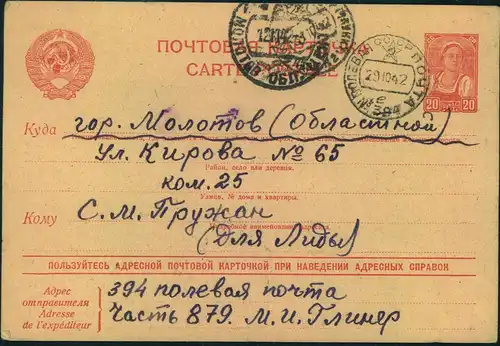 ПОЧТОВАЯ КАРТОЧКА
CARTE
ПОЧТА
29 10 42
394
20 20
Куда гор. Молотов (Областной)
Ул. Кирова № 65
Район, село или деревня.
ком. 25
Улица, № дома и квартиры.
Кому С. М. Пружан
Подробное наименование адресата
(для Лиды)
ПОЛЬЗУЙТЕСЬ АДРЕСНОЙ ПОЧТОВОЙ КАРТОЧКОЙ ПРИ НАВЕДЕНИИ АДРЕСНЫХ СПРАВОК
Адрес
отправителя
Adresse
de l'expéditeur
394 полевая почта
Часть 879. М. И. Глинер